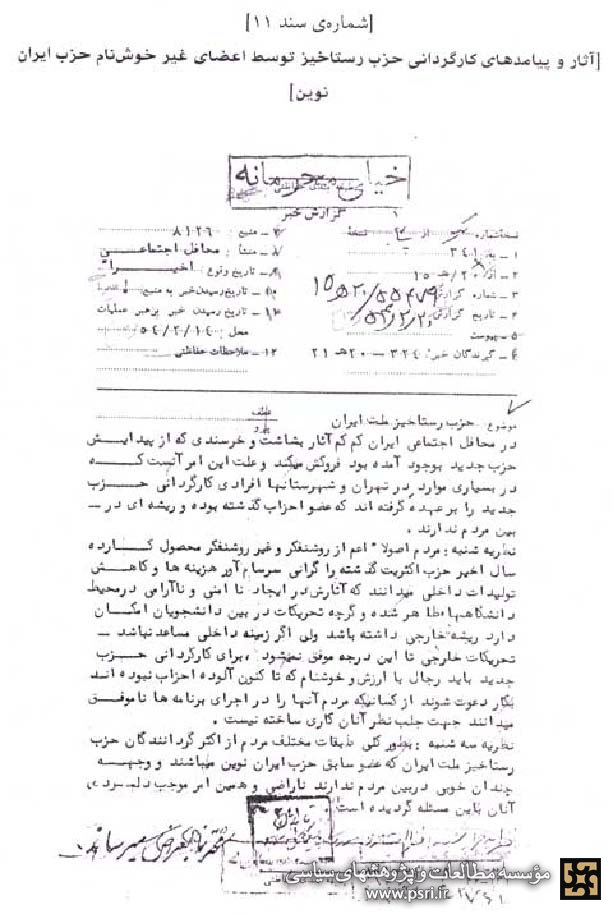 [شماره‌ی سند ۱۱]
[آثار و پیامدهای کارگردانی حزب رستاخیز توسط اعضای غیر خوش‌نام حزب ایران
نوین]
خیلی محرمانه
گزارش خبر
نسخه شماره از نسخه
۱ - به ۳۴۱
۲ - از ۲۰ هـ ۱۵
۳ - شماره گزارش
۴ - تاریخ گزارش
۵ - پیوست
۶ - گیرندگان خبر: ۳۲۴ — ۲۰ هـ ۲۱
۷ - منبع : ۸۱۲۶
۸ - منشأ : محافل اجتماعی
۹ - تاریخ وقوع : اخیرا
۱۰ - تاریخ رسیدن خبر به منبع :
۱۱ - تاریخ رسیدن خبر برهبر عملیات
محل : ۵۴/۲/۱۴
۱۲ - ملاحظات حفاظتی
موضوع : حزب رستاخیز ملت ایران
عطف
پیرو
در محافل اجتماعی ایران کم کم آثار بشاشت و خرسندی که از پیدایش
حزب جدید بوجود آمده بود فروکش میکند و علت این امر آنست که
در بسیاری موارد در تهران و شهرستانها افرادی کارگردانی حزب
جدید را بر عهده گرفته اند که عضو احزاب گذشته بوده و ریشه ای در —
بین مردم ندارند .
نظریه شنبه : مردم اصولا" اعم از روشنفکر و غیر روشنفکر محصول کارده
سال اخیر حزب اکثریت گذشته را گرانی سرسام آور هزینه ها و کاهش
تولیدات داخلی میدانند که آثارش در ایجاد نا امنی و ناآرامی در محیط
دانشگاهها ظاهر شده و گرچه تحریکات در بین دانشجویان امکان
دارد ریشه خارجی داشته باشد ولی اگر زمینه داخلی مساعد نباشد —
تحریکات خارجی تا این درجه موفق نمیشود ، برای کارگردانی حزب
جدید باید رجال با ارزش و خوشنام که تا کنون آلوده احزاب نبوده اند
بکار دعوت شوند از کسانیکه مردم آنها را در اجرای برنامه ها ناموفق
میدانند جهت جلب نظر آنان کاری ساخته نیست .
نظریه سه شنبه : بطور کلی طبقات مختلف مردم از اکثر گردانندگان حزب
رستاخیز ملت ایران که عضو سابق حزب ایران نوین میباشند و وجهه
چندان خوبی در بین مردم ندارند ناراضی و همین امر موجب دلسردی
آنان باین مسئله گردیده است .
مؤسسه مطالعات و پژوهشهای سیاسی
www.psri.ir